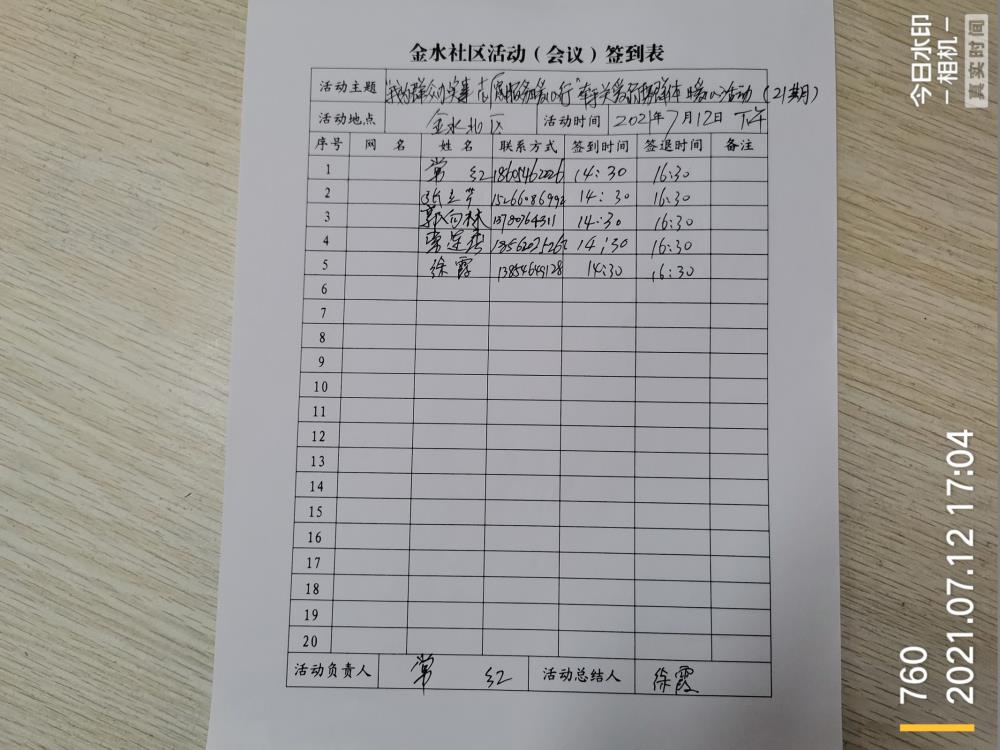 金水社区活动（会议）签到表
活动主题 "我为群众办实事 志愿服务暖心行" 牵手关爱 群体 暖心活动（21期）
活动地点 金水社区 活动时间 2021年7月12日 下午
序号 网 名 姓 名 联系方式 签到时间 签退时间 备注
1 常 红 14:30 16:30
2 15266086992 14:30 16:30
3 郭向林 13780764311 14:30 16:30
4 14:30 16:30
5 徐霞 13854649128 14:30 16:30
6
7
8
9
10
11
12
13
14
15
16
17
18
19
20
活动负责人 常 红 活动总结人 徐霞
今日水印
-相机-
真实时间
760
2021.07.12 17:04